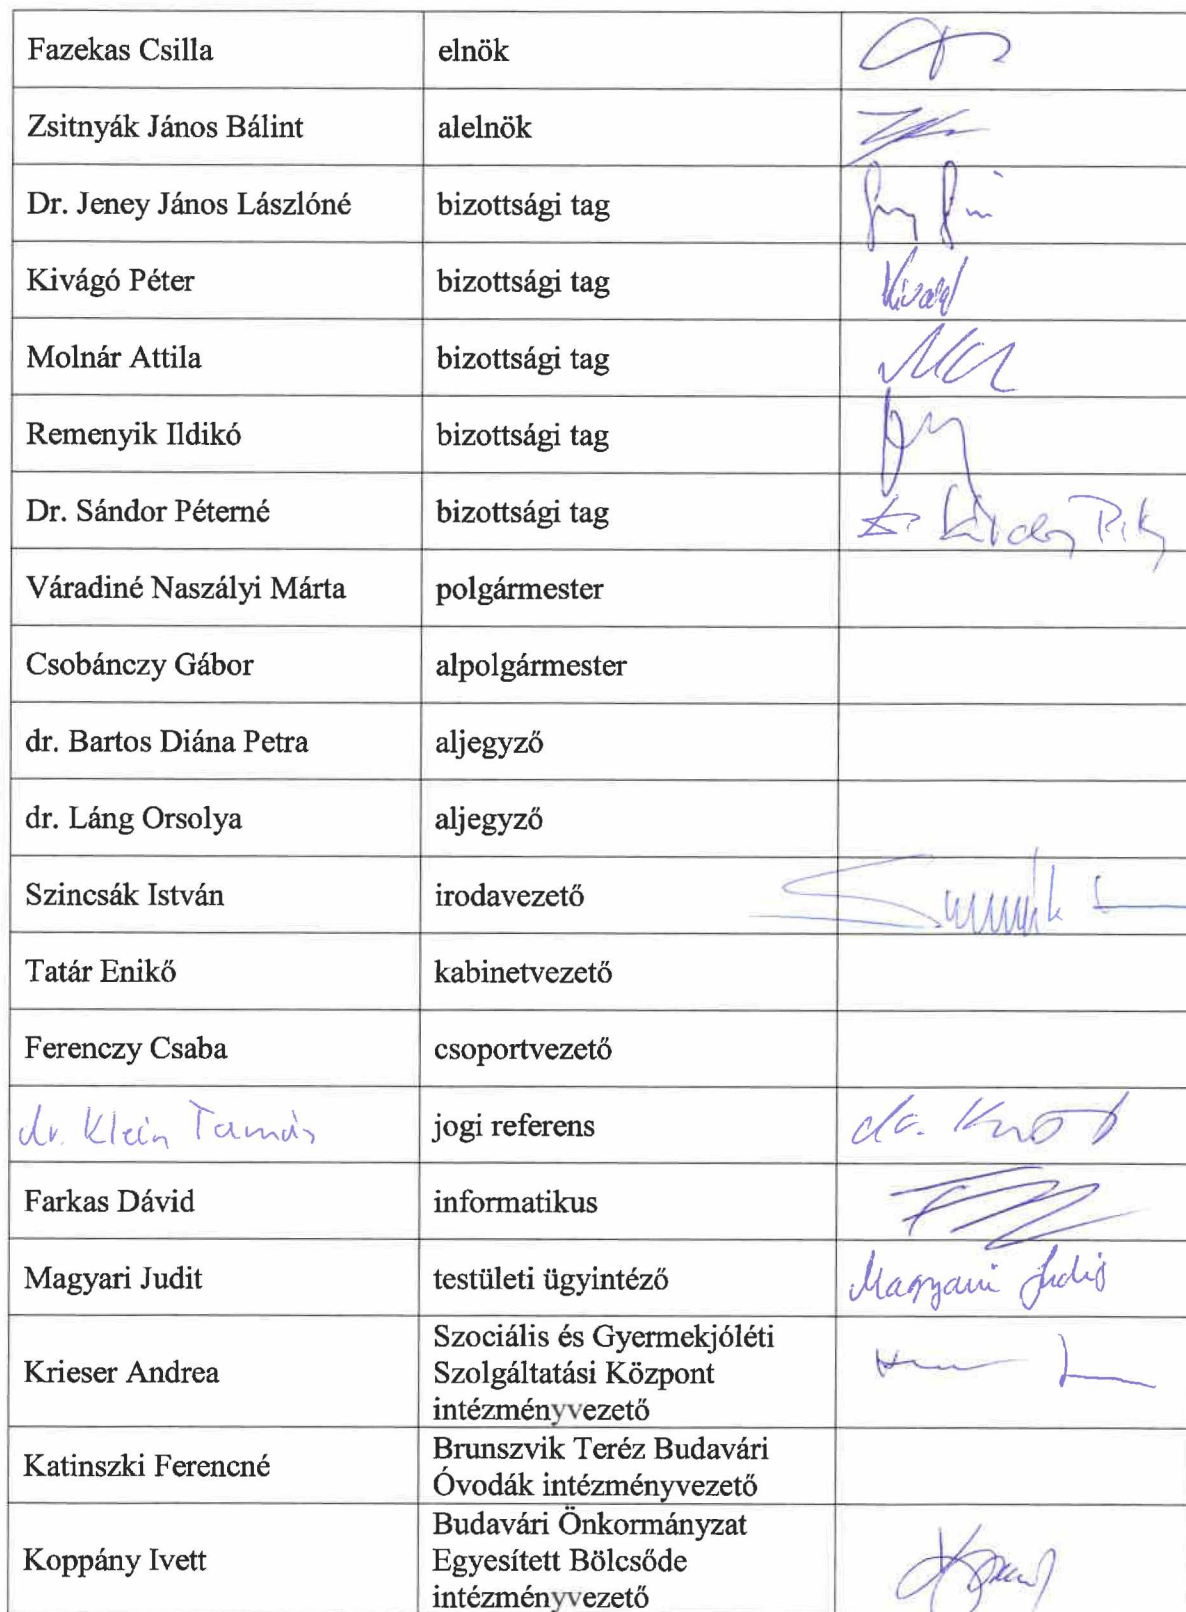 Fazekas Csilla elnök
Zsitnyák János Bálint alelnök
Dr. Jeney János Lászlóné bizottsági tag
Kivágó Péter bizottsági tag
Molnár Attila bizottsági tag
Remenyik Ildikó bizottsági tag
Dr. Sándor Péterné bizottsági tag
Váradiné Naszályi Márta polgármester
Csobánczy Gábor alpolgármester
dr. Bartos Diána Petra aljegyző
dr. Láng Orsolya aljegyző
Szincsák István irodavezető
Tatár Enikő kabinetvezető
Ferenczy Csaba csoportvezető
dr. Klein Tamás jogi referens
Farkas Dávid informatikus
Magyari Judit testületi ügyintéző Magyari Judit
Szociális és Gyermekjóléti
Krieser Andrea Szolgáltatási Központ
intézményvezető
Brunszvik Teréz Budavári
Katinszki Ferencné Óvodák intézményvezető
Budavári Önkormányzat
Koppány Ivett Egyesített Bölcsőde
intézményvezető